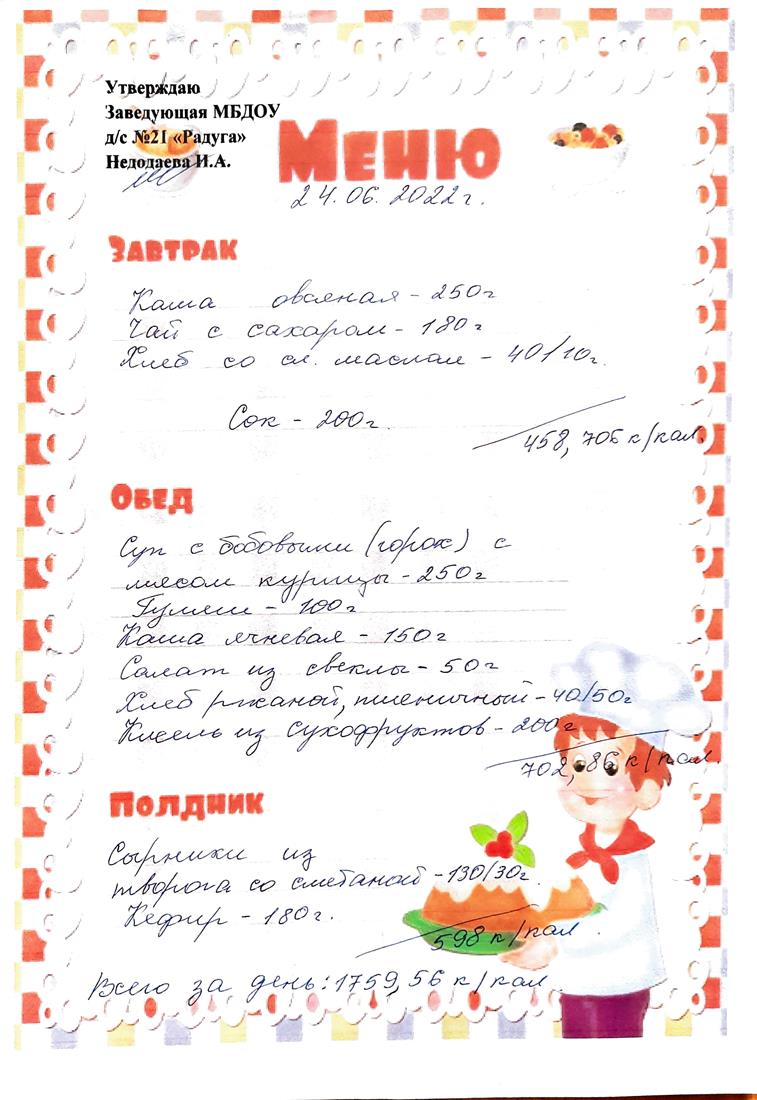 Утверждаю
Заведующая МБДОУ
д/с №21 «Радуга»
Недодаева И.А.
Меню
24.06.2022г.
Завтрак
Каша овсяная - 250г
Чай с сахаром - 180г
Хлеб со сл. маслом - 40/10г.
Сок - 200г.
458,706 к/кал.
Обед
Суп с бобовыми (горох) с
мясом курицы - 250г
Гуляш - 100г
Каша ячневая - 150г
Салат из свеклы - 50г
Хлеб ржаной, пшеничный - 40/50г
Кисель из сухофруктов - 200г
702,86 к/кал.
Полдник
Сырники из
творога со сметаной - 130/30г.
Кефир - 180г.
598 к/кал.
Всего за день: 1759,56 к/кал.